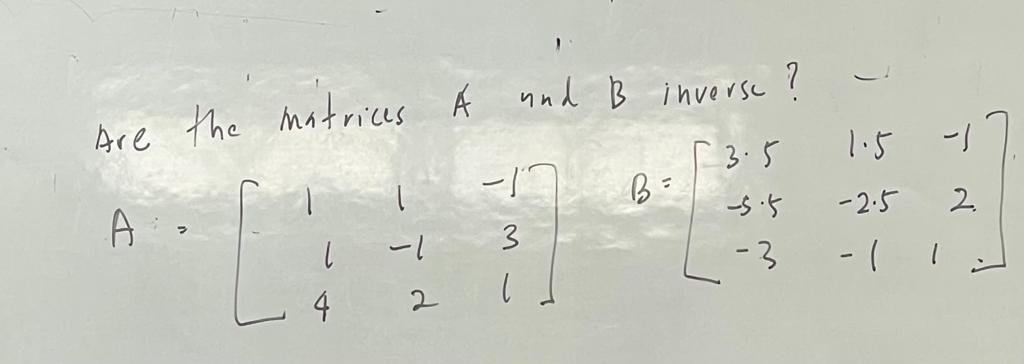 Are the matrices A and B inverse?
A = [1 1 -1
1 -1 3
4 2 1]
B = [3.5 1.5 -1
-5.5 -2.5 2
-3 -1 1]